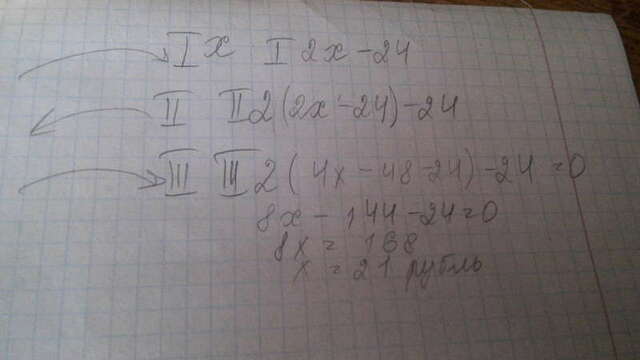 I x I 2x - 24
II II 2(2x - 24) - 24
III III 2(4x - 48 - 24) - 24 = 0
8x - 144 - 24 = 0
8x = 168
x = 21 рубль